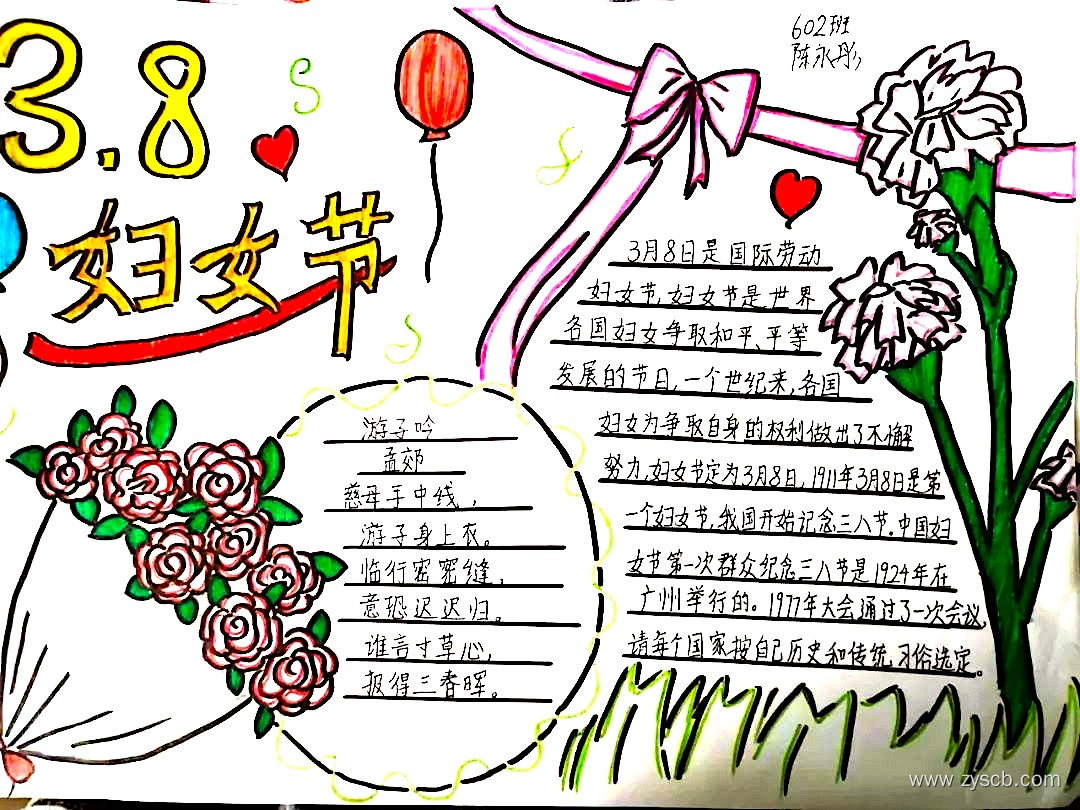 3.8
妇女节
602班
陈永彤
游子吟
孟郊
慈母手中线，
游子身上衣。
临行密密缝，
意恐迟迟归。
谁言寸草心，
报得三春晖。
3月8日是国际劳动
妇女节，妇女节是世界
各国妇女争取和平、平等
发展的节日，一个世纪来，各国
妇女为争取自身的权利做出了不懈
努力，妇女节定为3月8日，1911年3月8日是第
一个妇女节，我国开始记念三八节．中国妇
女节第一次群众纪念三八节是1924年在
广州举行的。1977年大会通过了一次会议，
请每个国家按自己历史和传统，习俗选定。
www.zyscb.com